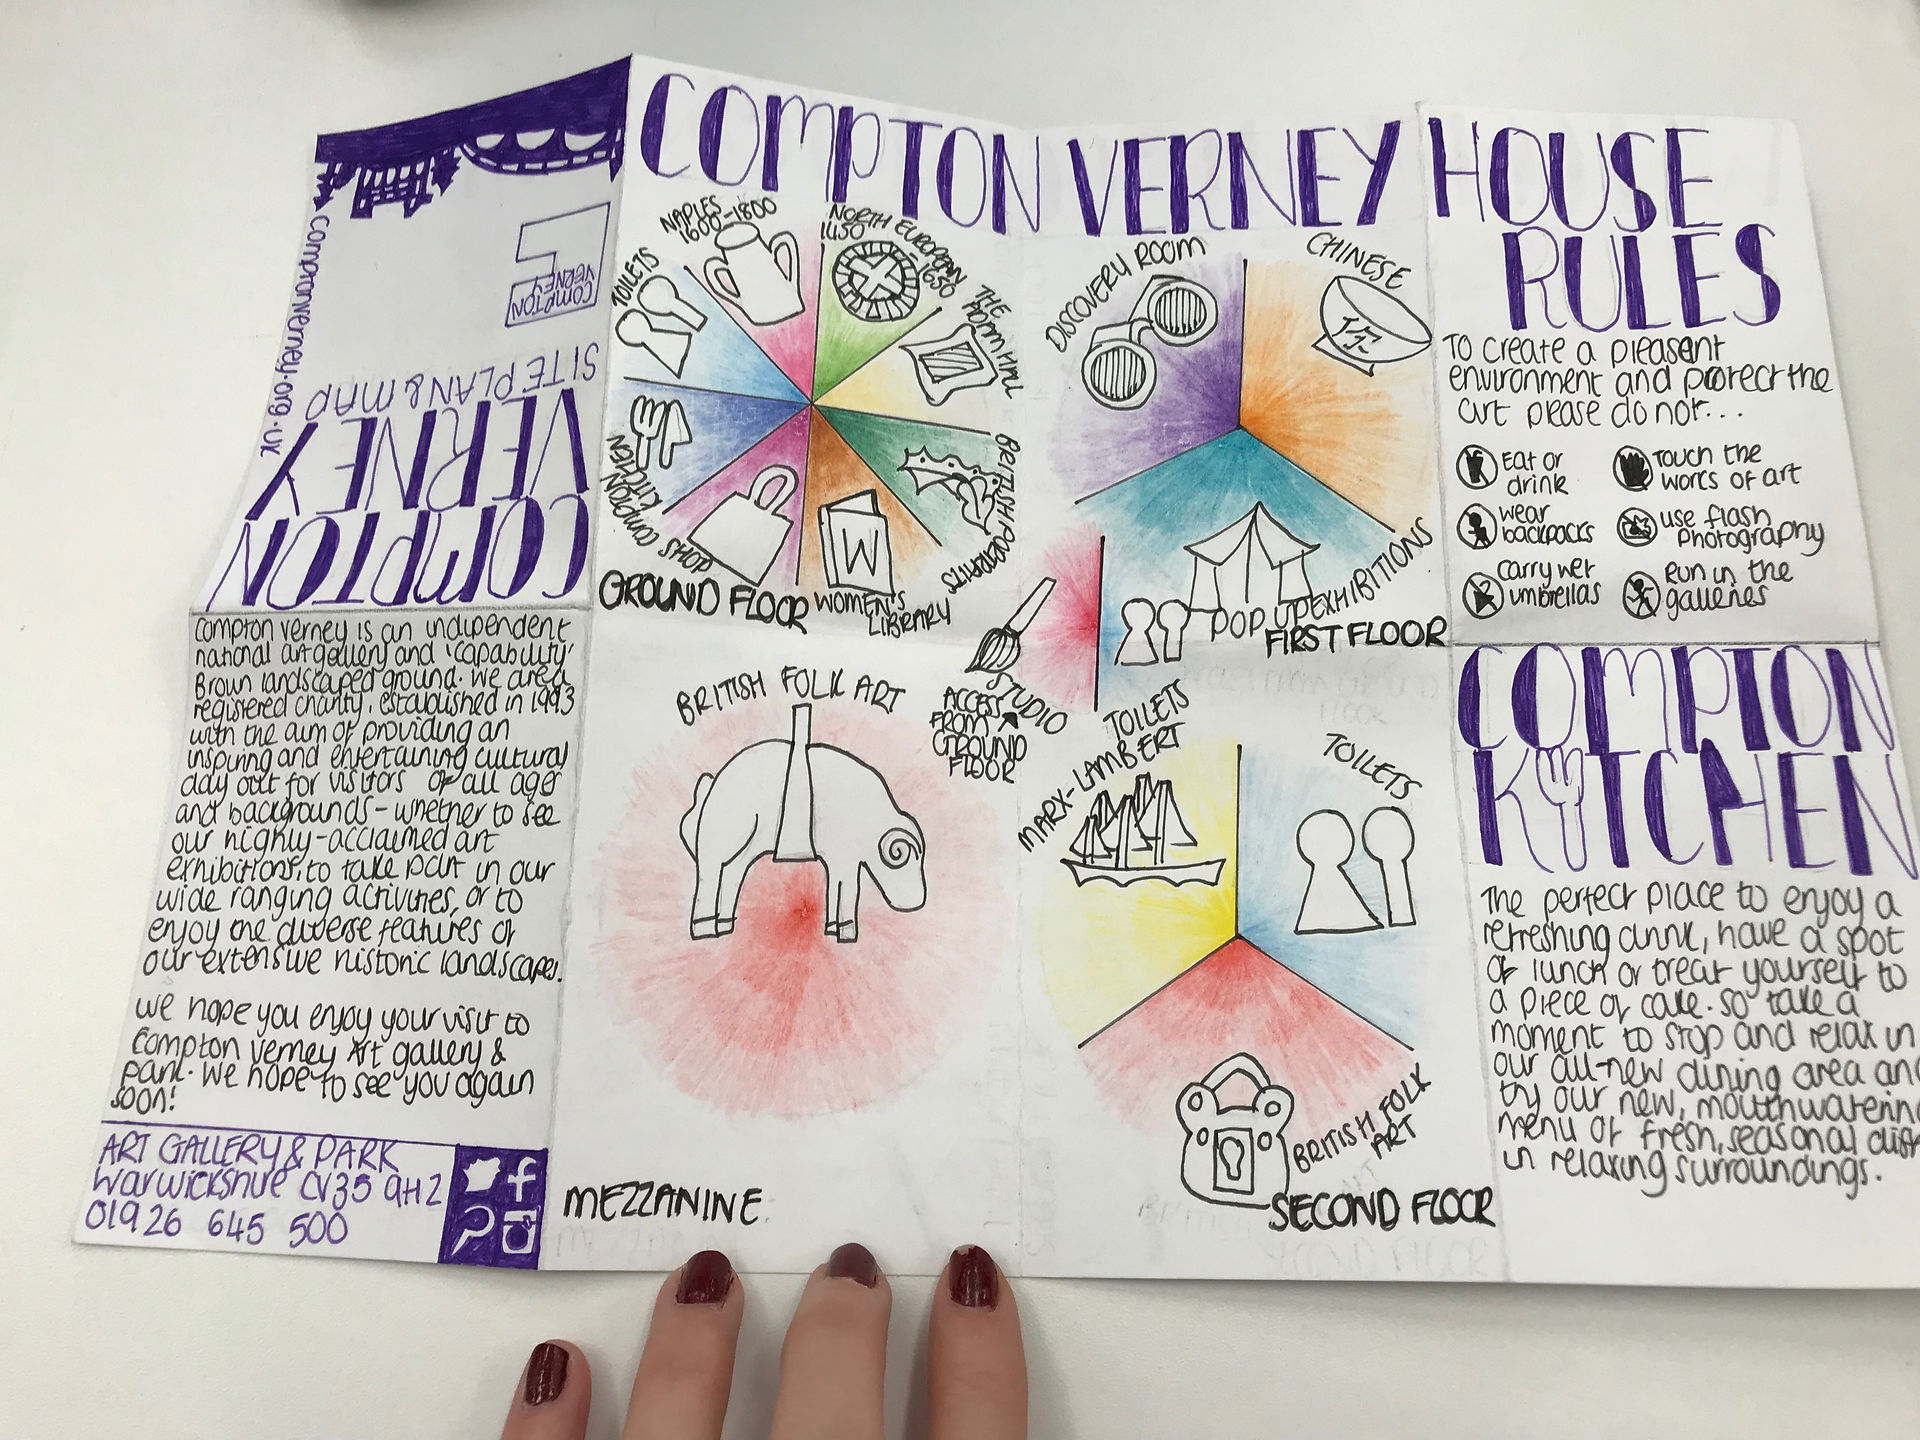 COMPTON VERNEY
HOUSE
RULES
To create a pleasent
environment and protect the
art please do not...
Eat or
drink
Touch the
works of art
wear
backpacks
use flash
Photography
carry wet
umbrellas
Run in the
galleries
COMPTON
KITCHEN
The perfect place to enjoy a
refreshing drink, have a spot
of lunch or treat yourself to
a piece of cake. So take a
moment to stop and relax in
our all-new dining area and
try our new, mouthwatering
menu of fresh, seasonal
in relaxing surroundings.
TOILETS
NAPLES
1600-1800
NORTH EUROPEAN
1450-1650
THE
ADAM HALL
BRITISH PORTRAITS
WOMEN'S
LIBRARY
SHOP
COMPTON
KITCHEN
GROUND FLOOR
DISCOVERY ROOM
CHINESE
POP UP EXHIBITIONS
FIRST FLOOR
STUDIO
ACCESS
FROM
GROUND
FLOOR
TOILETS
BRITISH FOLK ART
MEZZANINE
MARX-LAMBERT
TOILETS
BRITISH FOLK
ART
SECOND FLOOR
COMPTON
VERNEY
SITE PLAN & MAP
COMPTON
VERNEY
comptonverney.org.uk
Compton Verney is an independent
national art gallery and 'capability'
Brown landscaped ground. We are a
registered charity, established in 1993
with the aim of providing an
inspiring and entertaining cultural
day out for visitors of all ages
and backgrounds - whether to see
our highly-acclaimed art
exhibitions, to take part in our
wide ranging activities, or to
enjoy the diverse features of
our extensive historic landscapes.
We hope you enjoy your visit to
Compton Verney Art gallery &
park. We hope to see you again
soon!
ART GALLERY & PARK
Warwickshire CV35 9HZ
01926 645 500